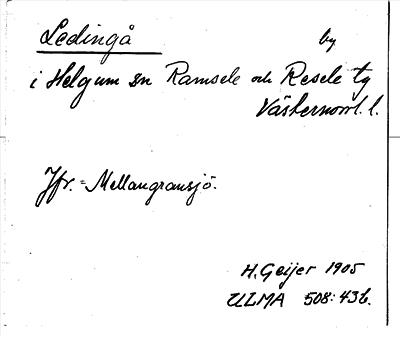 Ledingå by
i Helgum sn Ramsele och Resele tg
Västernorrl. l.
Jfr. = Mellangransjö.
H. Geijer 1905
ULMA 508:43b.